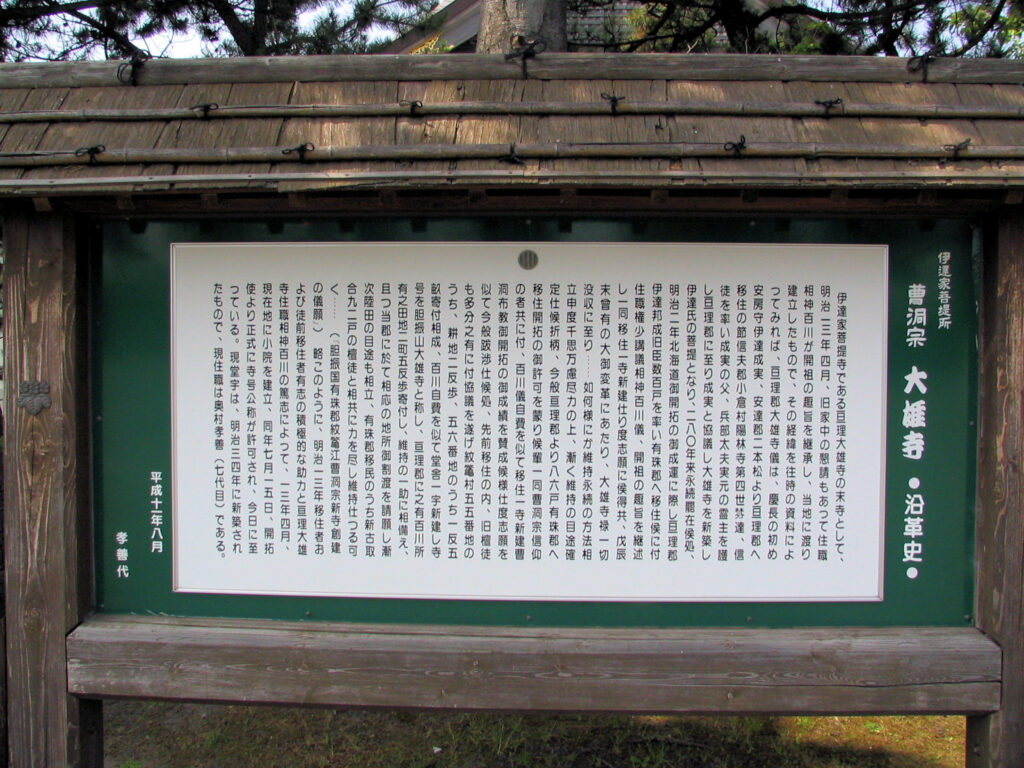 伊達家菩提所
曹洞宗 大雄寺 ●沿革史●
伊達家菩提寺である亘理大雄寺の末寺として、
明治一三年四月、旧家中の懇請もあって住職
相神百川が開祖の趣旨を継承し、当地に渡り
建立したもので、その経緯を往時の資料によ
つてみれば、亘理郡大雄寺儀は、慶長の初め
安房守伊達成実、安達郡二本松より亘理郡へ
移住の節信夫郡小倉村陽林寺第四世 達、信
徒を率い成実の父、兵部太夫実元の霊主を護
し亘理郡に至り成実と協議し大雄寺を新築し
伊達氏の菩提となり、二八〇年来永続罷在侯処、
明治二年北海道御開拓の御成運に際し亘理郡
伊達邦成旧臣数百戸を率い有珠郡へ移住侯に付
住職権少講議相神百川儀、開祖の趣旨を継述
し一同移住一寺新建仕り度志願に侯得共、戊辰
末曽有の大御変革にあたり、大雄寺禄一切
没収に至り……如何様にか維持永続の方法相
立申度千思万慮尽力の上、漸く維持の目途確
定仕候折柄、今般亘理郡より八六戸有珠郡へ
移住開拓の御許可を蒙り候輩一同曹洞宗信仰
の者共に付、百川儀自費を似て移住一寺新建曹
洞布教御開拓の御成績を賛成候様仕度志願を
似て今般跋渉仕候処、先前移住の内、旧檀徒
も多分之有に付協議を遂げ紋鼈村五五番地の
うち、耕地二反歩、五六番地のうち一反五
畝寄付相成、百川自費を似て堂舎一字新建し寺
号を胆振山大雄寺と称し、亘理郡に之有百川所
有之田地二町五反歩寄付し、維持の一助に相備え、
且つ当郡に於て相応の地所御割渡を請願し漸
次陸田の目途も相立、有珠郡移民のうち新古取
合九二戸の檀徒と相共に力を尽し維持仕つる可
く……（胆振国有珠郡紋鼈江曹洞宗新寺創建
の儀願）』略このように、明治一三年移住者お
よび徒前移住者有志の積極的な助力と亘理大雄
寺住職相神百川の篤志によって、一三年四月、
現在地に小院を建立、同年七月一五日、開拓
使より正式に寺号公称が許可され、今日に至
つている。現堂宇は、明治三四年に新築され
たもので、現住職は奥村孝善（七代目）である。
平成十一年八月
孝善代